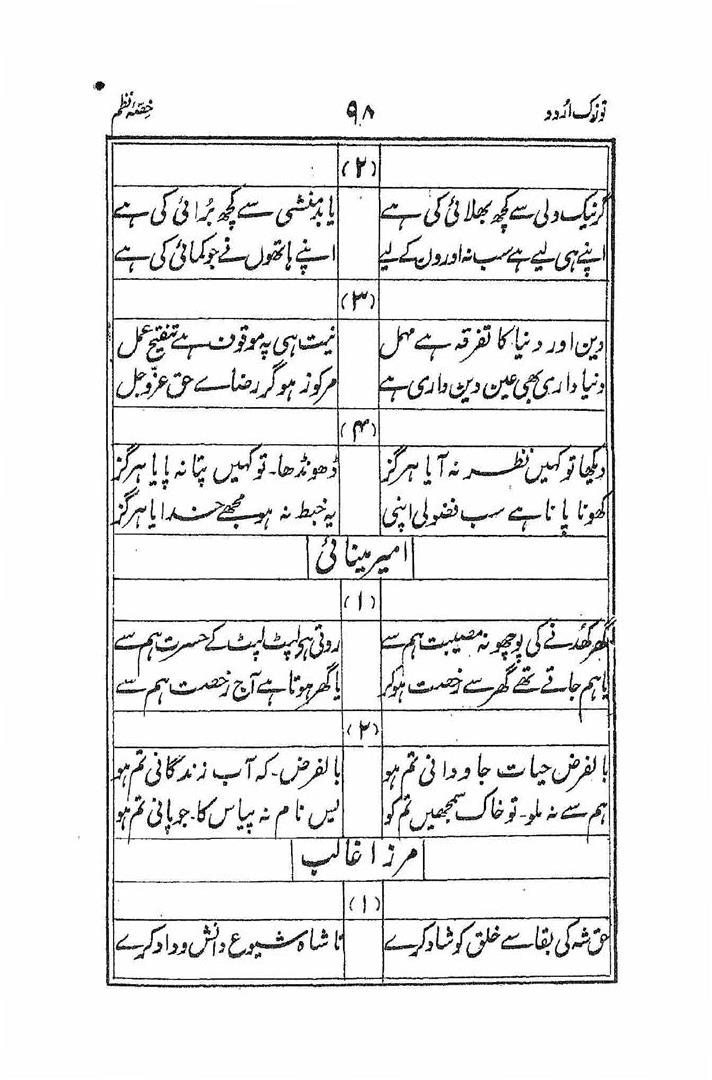 توزک اُردو ۹۸ حِصّۂ نظم
(۲)
گر نیک دلی سے کچھ بھلائی کی ہے یا بد منشی سے کچھ بُرائی کی ہے
اپنے ہی لیے ہے سب نہ اورون کے لیے اپنے ہاتھوں نے جو کمائی کی ہے
(۳)
دین اور دنیا کا تفرقہ ہے مہمل نیت ہی پہ موقوف ہے تنقیح عمل
دنیا داری بھی عین دین داری ہے مرکوز ہو گر رضاے حق عزوجل
(۴)
دیکھا تو کہیں نظر نہ آیا ہرگز ڈھونڈھا۔ تو کہیں پتا نہ پایا ہرگز
کھونا پانا ہے سب فضولی اپنی یہ خبط نہ ہو مجھے خدایا ہرگز
امیر مینائی
(۱)
گھر کھُدنے کی پوچھو نہ مصیبت ہم سے روتی ہی لپٹ لپٹ کے حسرت ہم سے
یا ہم جاتے تھے گھر سے رخصت ہو کر یا گھر ہوتا ہے آج رخصت ہم سے
(۲)
بالفرض حیات جاودانی تم ہو بالفرض۔ کہ آب زندگانی تم ہو
ہم سے نہ ملو۔ تو خاک سمجھیں تم کو لیں نام نہ پیاس کا۔ جو پانی تم ہو
مرزا غالب
(۱)
حق شہ کی بقا سے خلق کو شاد کرے تا شاہ شیوع دانش و داد کرے